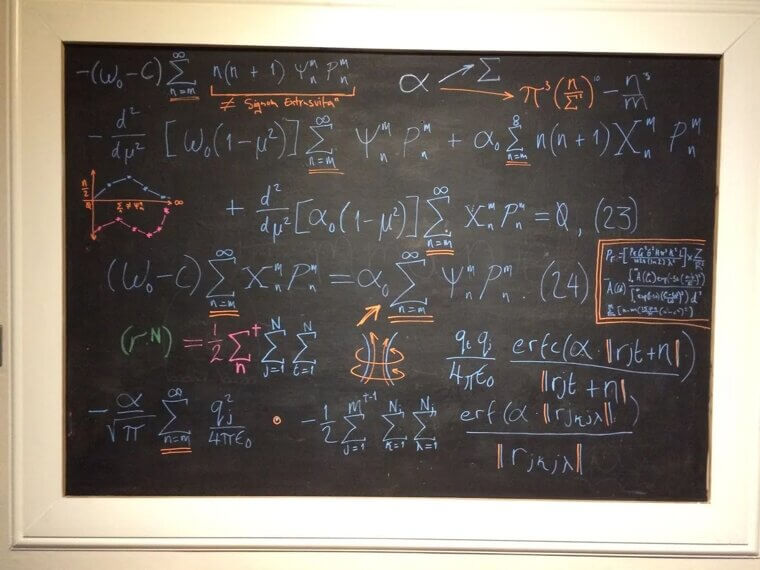 -(ω₀-C) ∑ₙ₌ₘ^∞ n(n+1) Ψₙᵐ Pₙᵐ
α → Σ
≠ Signom Extrasvita
→ π⁻³ (n/Σ²)¹⁰ - n³/m
- d²/dμ² [ω₀(1-μ²)] ∑ₙ₌ₘ^∞ Ψₙᵐ Pₙᵐ + α₀ ∑ₙ₌ₘ^8 n(n+1) Xₙᵐ Pₙᵐ
n/2
∞
+ d²/dμ² [α₀(1-μ²)] ∑ₙ₌ₘ^∞ Xₙᵐ Pₙᵐ = 0, (23)
(ω₀-C) ∑ₙ₌ₘ^∞ Xₙᵐ Pₙᵐ = α₀ ∑ₙ₌ₘ^∞ Ψₙᵐ Pₙᵐ. (24)
(r^N) = 1/2 ∑ₙ^† ∑ⱼ₌₁^N ∑ₜ₌₁^N
qₜ qⱼ/4πε₀ erfc(α·‖rjt+n‖)/‖rjt+n‖
- α/√π ∑ₙ₌ₘ^∞ qⱼ²/4πε₀ • - 1/2 ∑ⱼ₌₁^(M†-1) ∑ₖ₌₁^(Nⱼ) ∑_(λ=1)^(Nⱼ) erf(α·‖r_jκjλ‖)/‖r_jκjλ‖